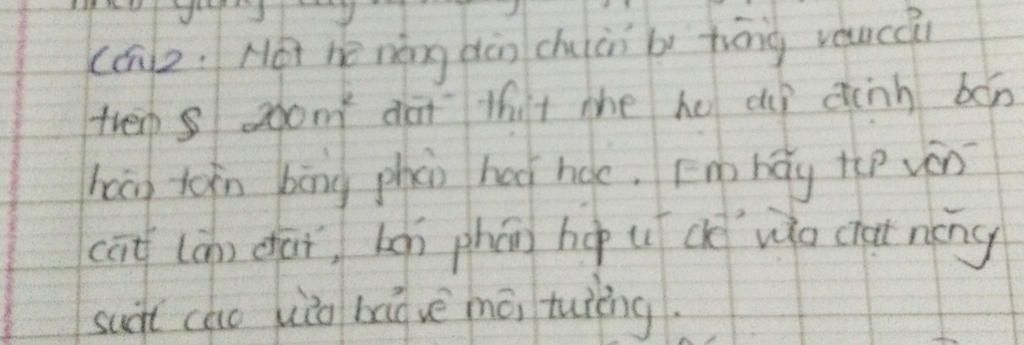 Câu 2: Một hộ nông dân chuẩn bị trồng rau cải
trên S 200m² đất thịt nhẹ họ dự định bón
hoàn toàn bằng phân hoá học. Em hãy tư vấn
cách làm đất, bón phân hợp lí để vừa đạt năng
suất cao vừa bảo vệ môi trường.